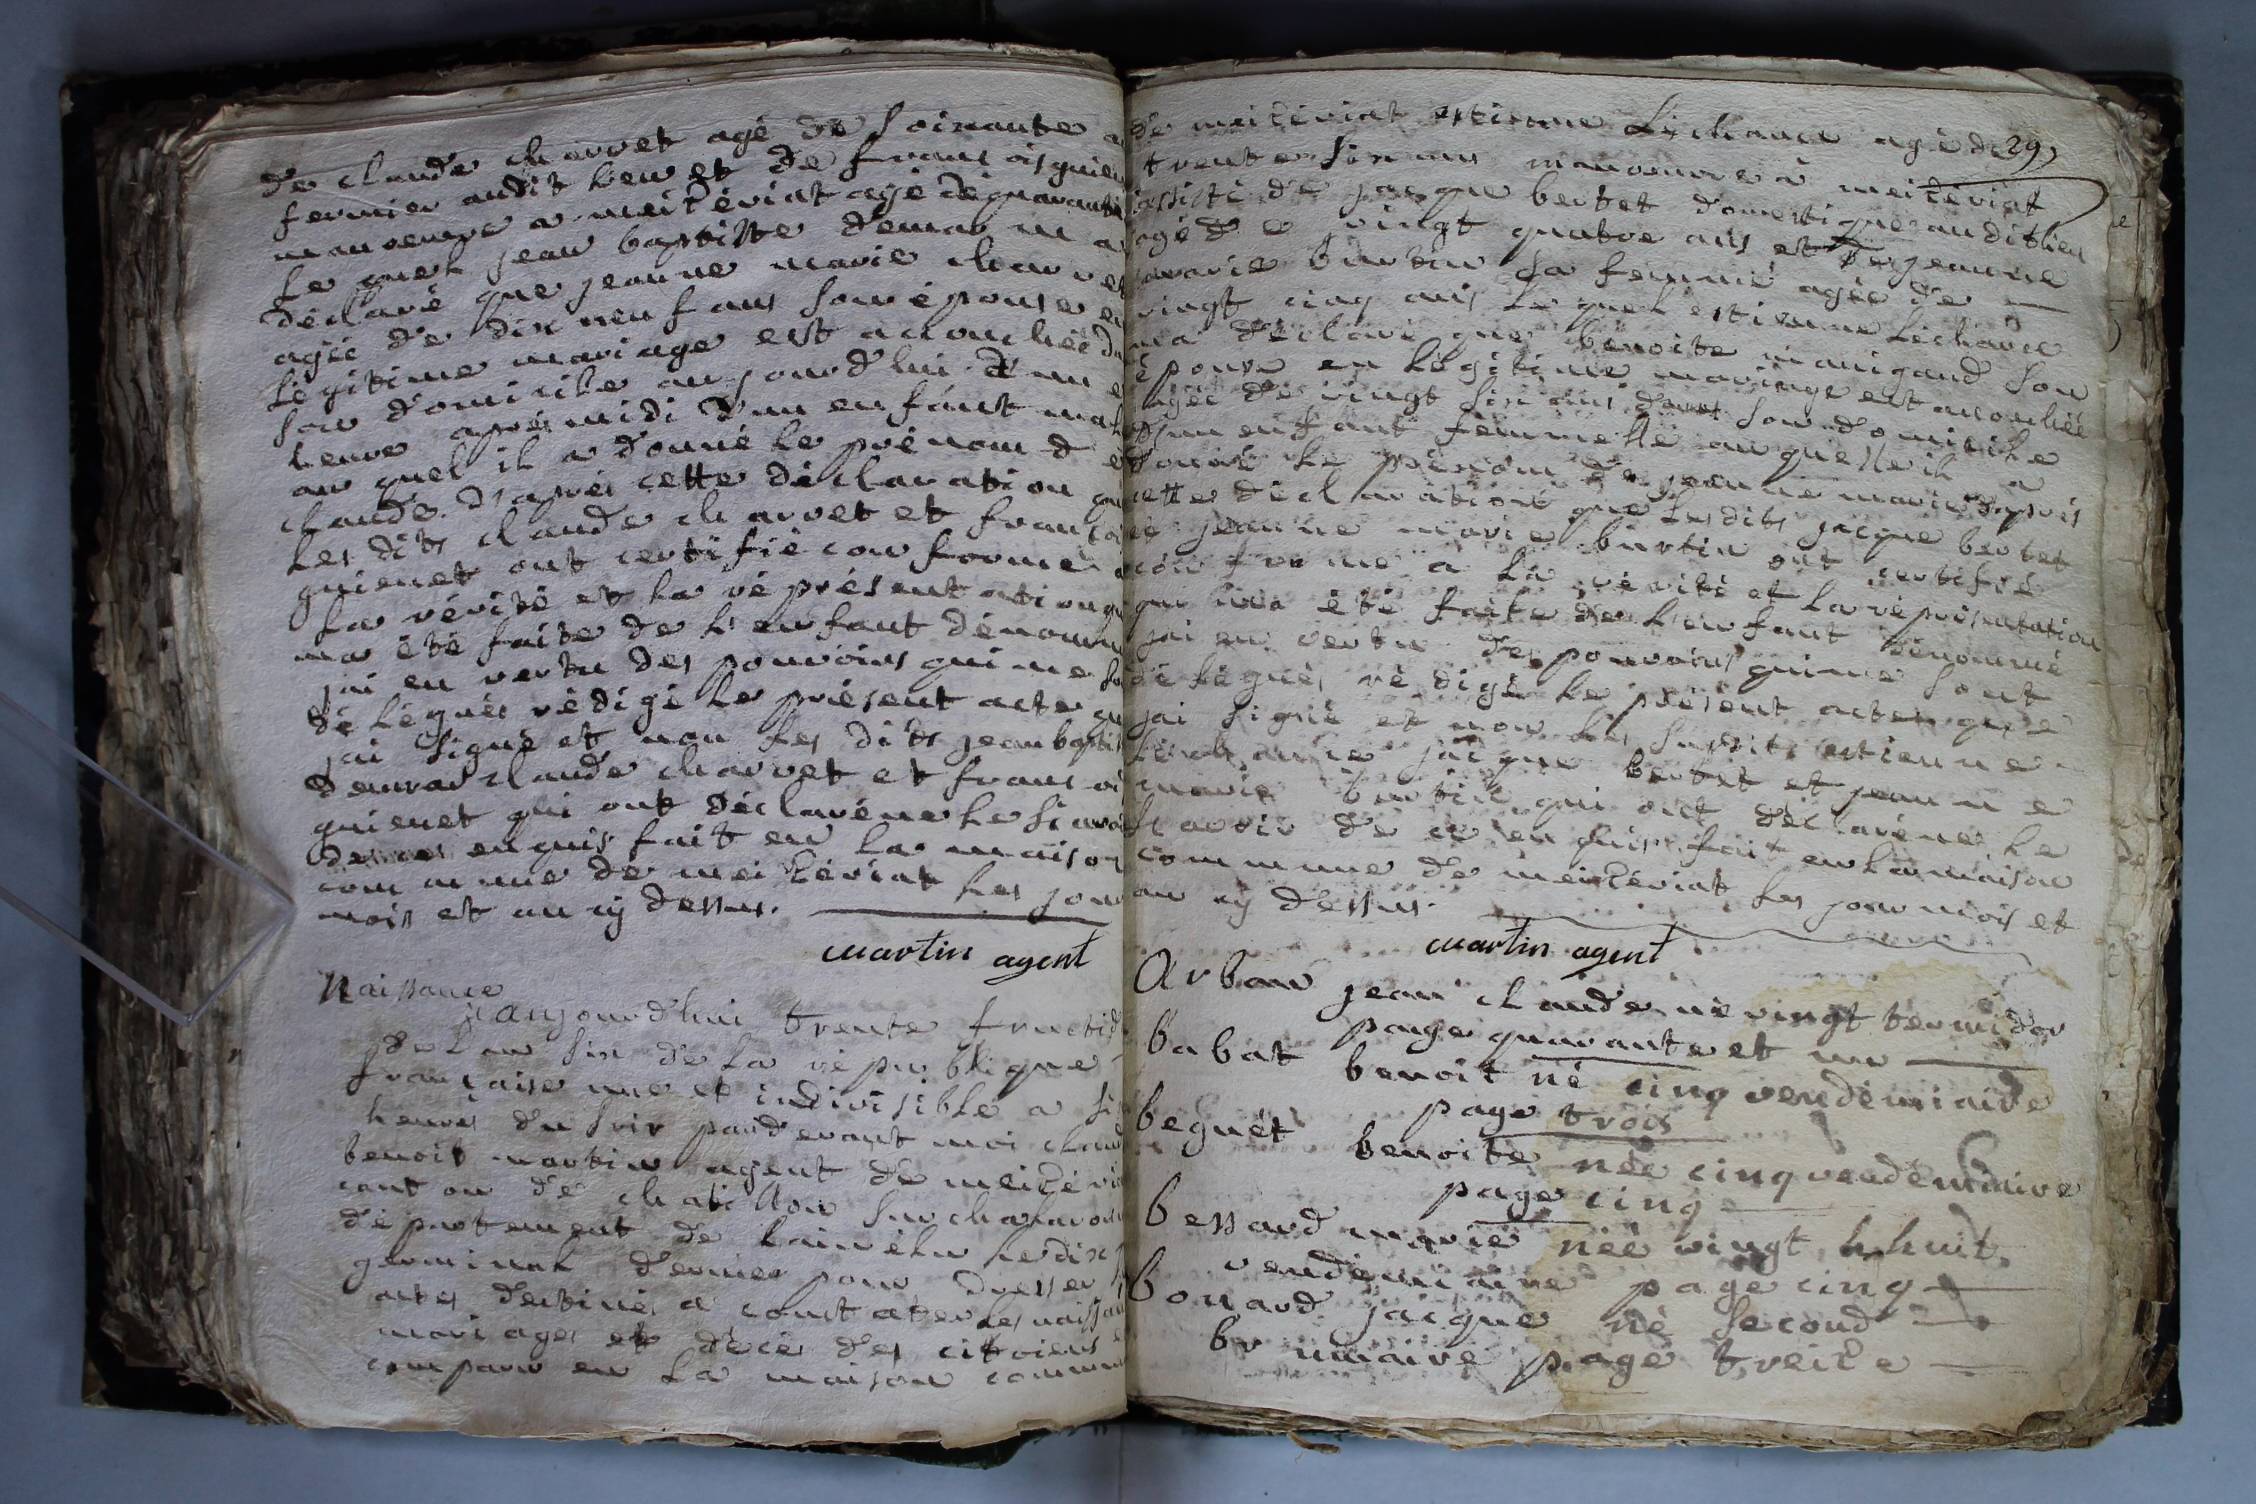 de claude charvet agé de soixante a
fermier audit lieu et de francois guien
manoeuvre a meizériat agé de quarante
le quel jean baptiste demar m a
déclaré que jeanne marie charvet
agée de dix neuf ans son épouse en
légitime mariage est accouchée da
son domicile aujourd'hui à une
heure après midi d'un enfant mal
au quel il a donné le prénom d e
claude. d'après cette déclaration que
les dits claude charvet et françoi
guienet ont certifié conforme a
la vérité et la représentation qu
ma été faite de l'enfant dénommé
jai en vertu des pouvoirs qui me so
délégués rédigé le présent acte que
jai signé et non les dits jean baptis
demar claude charvet et francoi
guienet qui ont déclaré ne le savoi
de ce enquis fait en la maison
commune de meizériat les jour
mois et an cy dessus.
martin agent
Naissance
aujourd'hui trente fructid
de l an six de la république
française une et indivisible a si
heures du soir pardevant moi claud
benoit martin agent de meizéria
canton de chatillon sur chalaronn
département de lain élu le dix
germinal dernier pour dresser l
actes destinés a constater les naissan
mariages et décé des citoiens e
comparu en la maison commun
29
de meizériat estienne Léchance agé de
trente six ans manoeuvre à meizériat
assisté de jacque bertet domestique au dit lieu
agé de vingt quatre ans et de jeanne
marie burtin sa femme agée de
vingt cinq ans le quel estienne Léchance
ma déclaré que benoite manigand son
épouse en légitime mariage est accouchée
agée de vingt six ans dans son domicile
d'un enfant femmelle au quelle il a
donné le prénom de jeanne marie d'après
cette déclaration que lesdits jacque bertet
et jeanne marie burtin ont certifié
conforme a la vérité et la représentation
qui ma été faite de l'enfant dénommé
jai en vertu des pouvoirs qui me sont
délégués rédigé le présent acte que
jai signé et non les susdits estienne
Léchance jacque bertet et jeanne
marie burtin qui ont déclaré ne le
scavoir de ce enquis fait en la maison
commune de meizériat les jour mois et
an cy dessus.
martin agent
Arban jean claude né vingt termidor
page quarante et un
babat benoit né cinq vendémiaire
page trois
beguet benoite née cinq vendémiaire
page cinq
bessard marie née vingt h huit
vendémiaire page cinq
bonard jacque né second
brumaire page treize